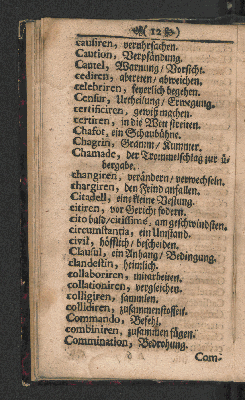 12
causiren, veruhrsachen.
Caution, Verpfändung.
Cautel, Warnung / Vorsicht.
cediren, abtreten / abweichen.
celebriren, feyerlich begehen.
Censur, Urtheilung / Erwegung.
certificiren, gewiß machen.
certiren, in die Wett streiten.
Chafot, ein Schaubühne.
Chagrin, Gramm / Kummer.
Chamade, der Trommelschlag zur ü-
bergabe.
changiren, verändern / verwechseln.
chargiren, den Feind anfallen.
Citadell, eine kleine Vestung.
citiren, vor Gericht fodern.
cito bald / citissime, am geschwindsten.
circumstantia, ein Umstand.
civil, höfflich / bescheiden.
Clausul, ein Anhang / Bedingung.
clandestin, heimlich.
collaboriren, mitarbeiten.
collationiren, vergleichen.
colligiren, sammlen.
collidiren, zusammenstossen.
Commando, Befehl.
combiniren, zusammen fügen.
Commination, Bedrohung.
Com-